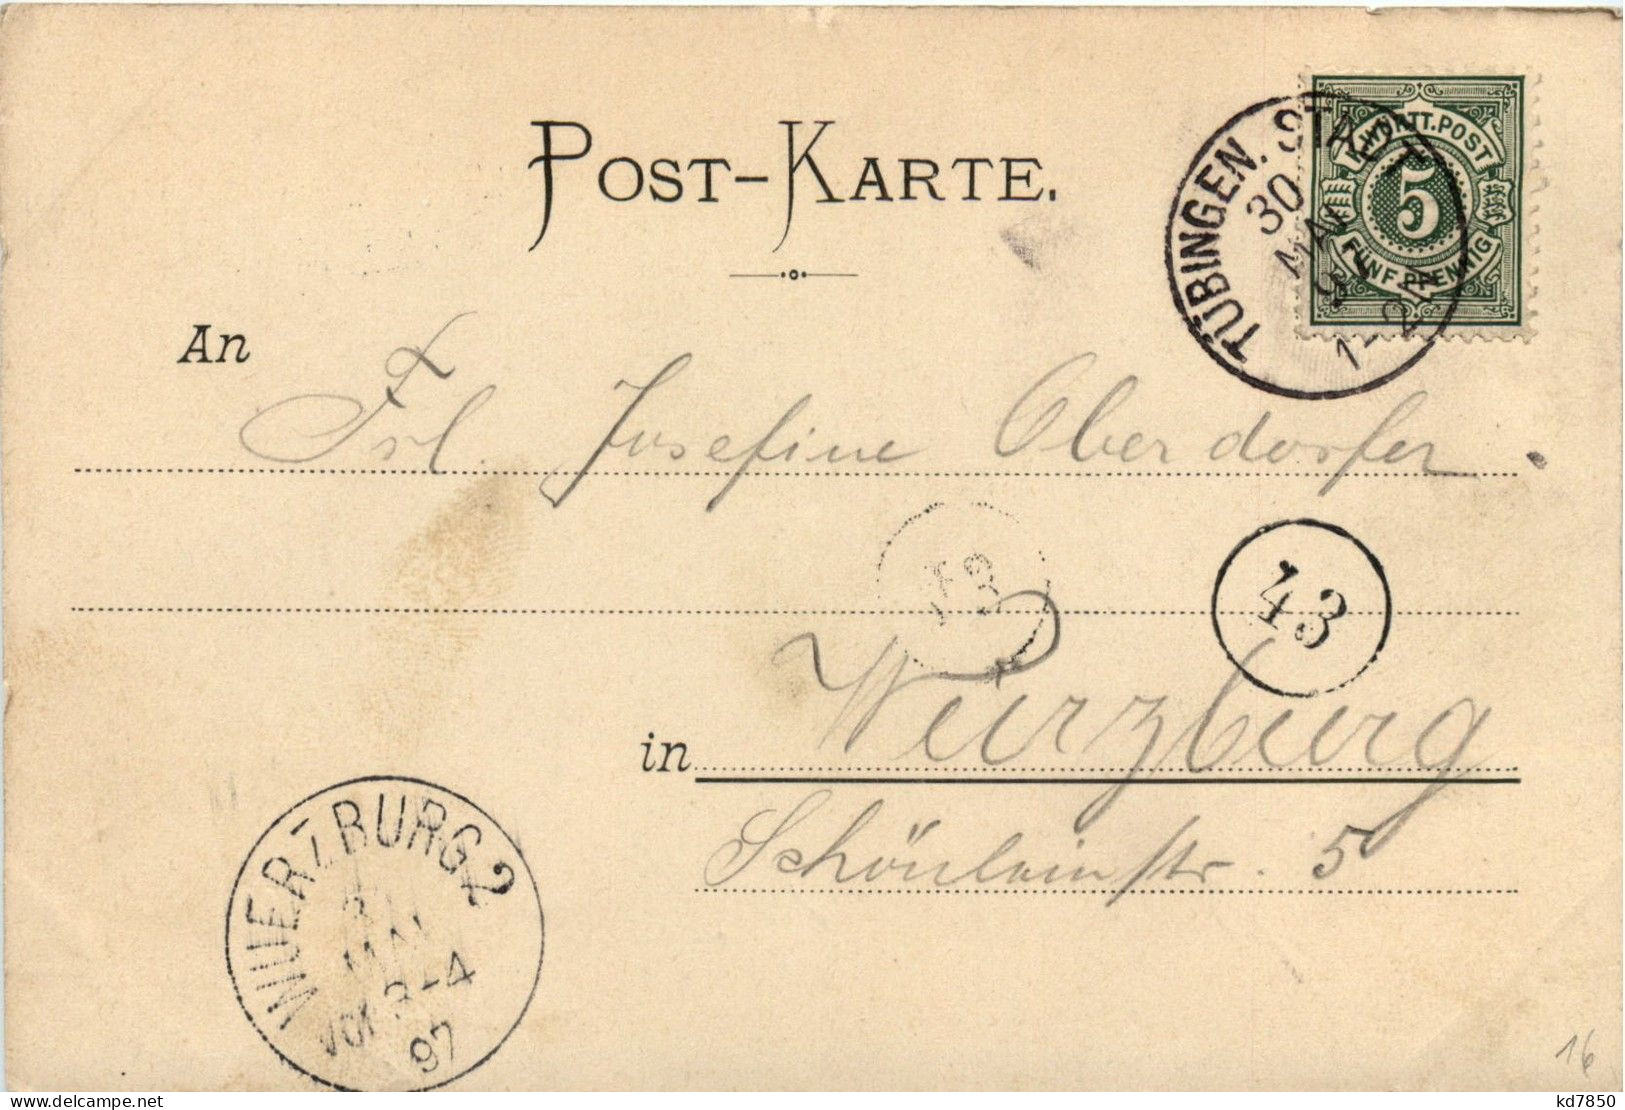 POST-KARTE.
TÜBINGEN. STADT
30
MAI
97
1-2N
K.WÜRTT.POST
5
FÜNF PFENNIG
An
Frl. Josefine Oberdorfer
43
in Würzburg
Schönleinstr. 5
WUERZBURG 2
MAI
VOR 3-4
97
16
delcampe.net
kd7850